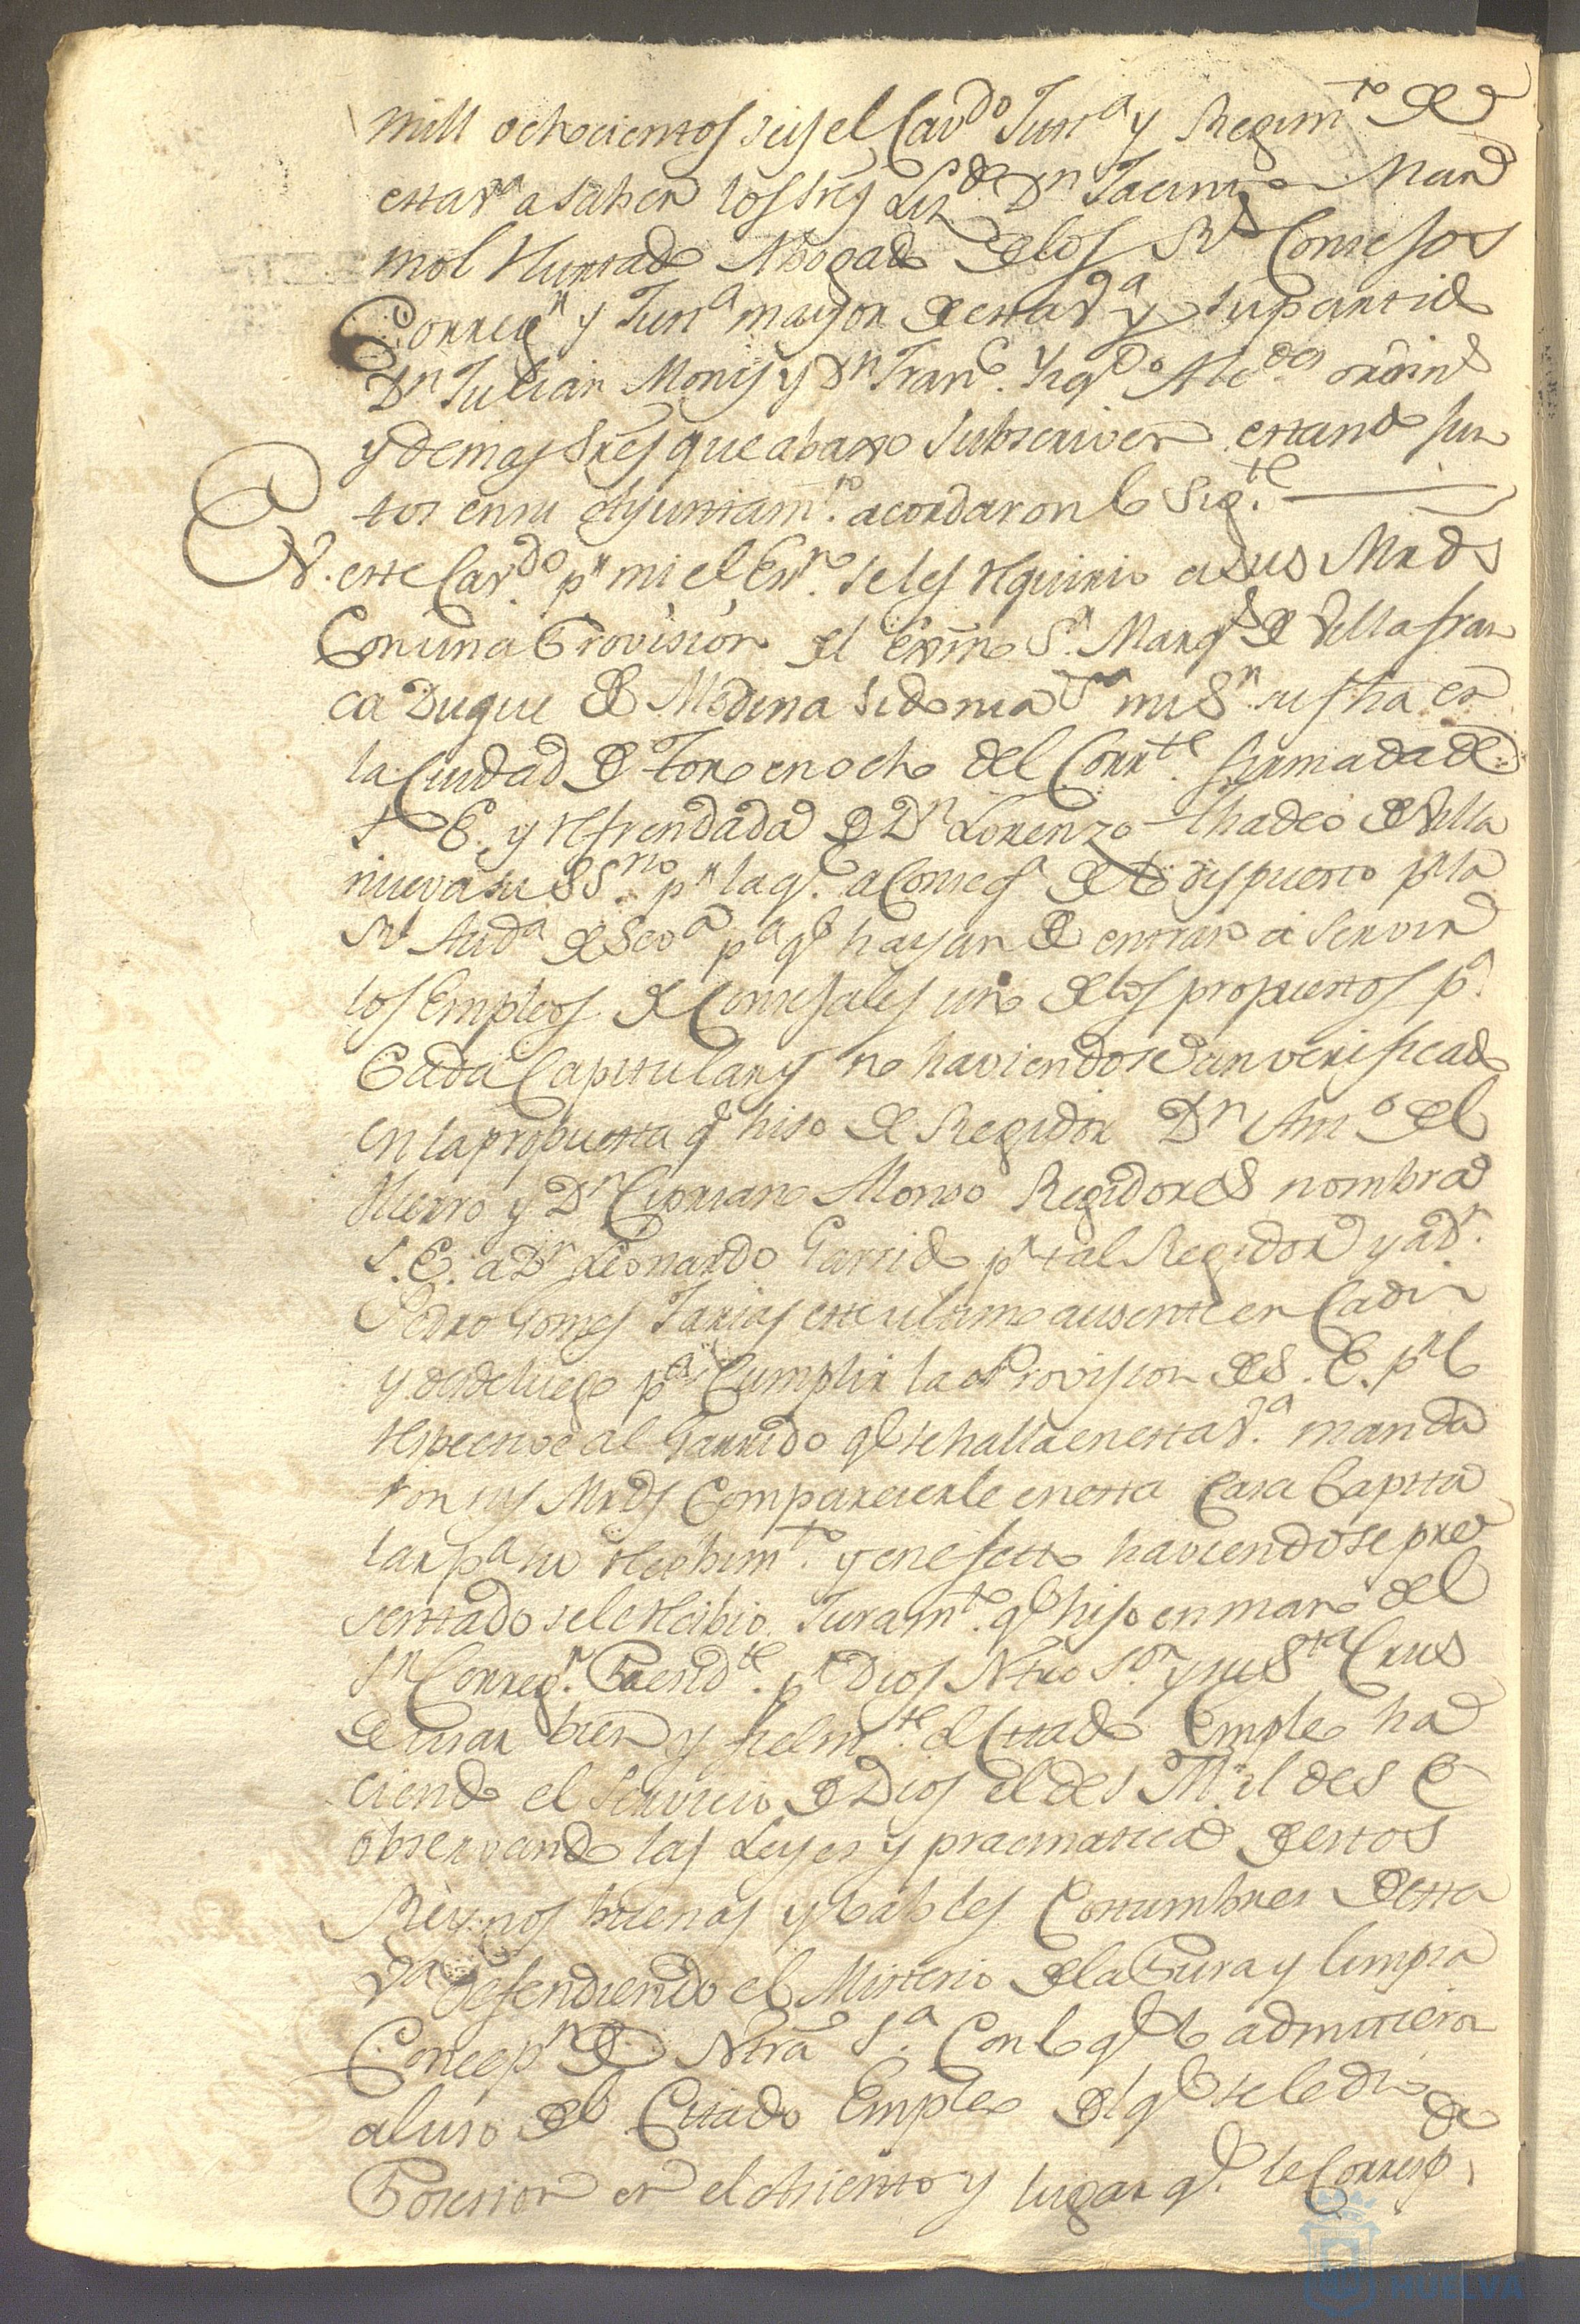 mill ochocientos seis el Cavdo Justa y Regimto de
esta Va a saber los Sres Licdo Dn Jacinto Mar
mol Hurtado Abogado de los Rs Consejos
Corregr y Justa mayor de esta Va y su partido
Dn Julian Monis y Dn Franco Alcdes ordins
y demas Sres que abaxo subscriven estando jun
tos en su Ayuntamto. acordaron lo Sigte.
En este Cavdo. pr mi el Esno. se les requirio a sus Mrds
Con una Provision del Exmo Sr. Marqs de Villafran
ca Duque de Medina Sidonia mi Sr. su fha en
la Ciudad de Toro en ocho del Corrte. firmada de
S E. y refrendada de Dn Lorenzo Thadeo de Villa
nueva su SSrio. pr la q. a Conseqa de lo dispuesto pr la
Rl Auda de Seva pa qe hayan de entrar a servir
los Empleos de Consejales uno de los propuestos pa.
Cada Capitular y no haviendose an verificado
en la propuesta qe hiso de Regidor Dn Anto del
Hierro y Dn Cipriano Alonso Regidores nombra
S. E. a Dn Leonardo Garrido pr tal Regidor y a Dn.
Pedro Gomes Farias este ultimo ausente en Cadiz
y desde luego pa Cumplir la Provision de S. E. pr lo
respective al Garrido qe se halla en esta Va. manda
ron sus Mrds Comparecerle en esta Casa Capitu
lar pa su recibimto. y en efecto haviendose pre
sentado se le recibio Juramto. qe hiso en mano del
Sr Corregr. Presidte. pr Dios Ntro Sor y su Sta Crus
de usar bien y fielmte. el Citado Empleo ha
ciendo el servicio de Dios el de S M. i el de S E
observando las Leyes y pracmaticas de estos
Reynos buenas y loables Costumbres de esta
Va defendiendo el Misterio de la Pura y limpia
Concepn de Ntra Sa. Con lo qe lo admitieron
al uso del Citado Empleo del qe se le dio la
Posesion en el Asiento y lugar qe. le Corresp.
HUELVA